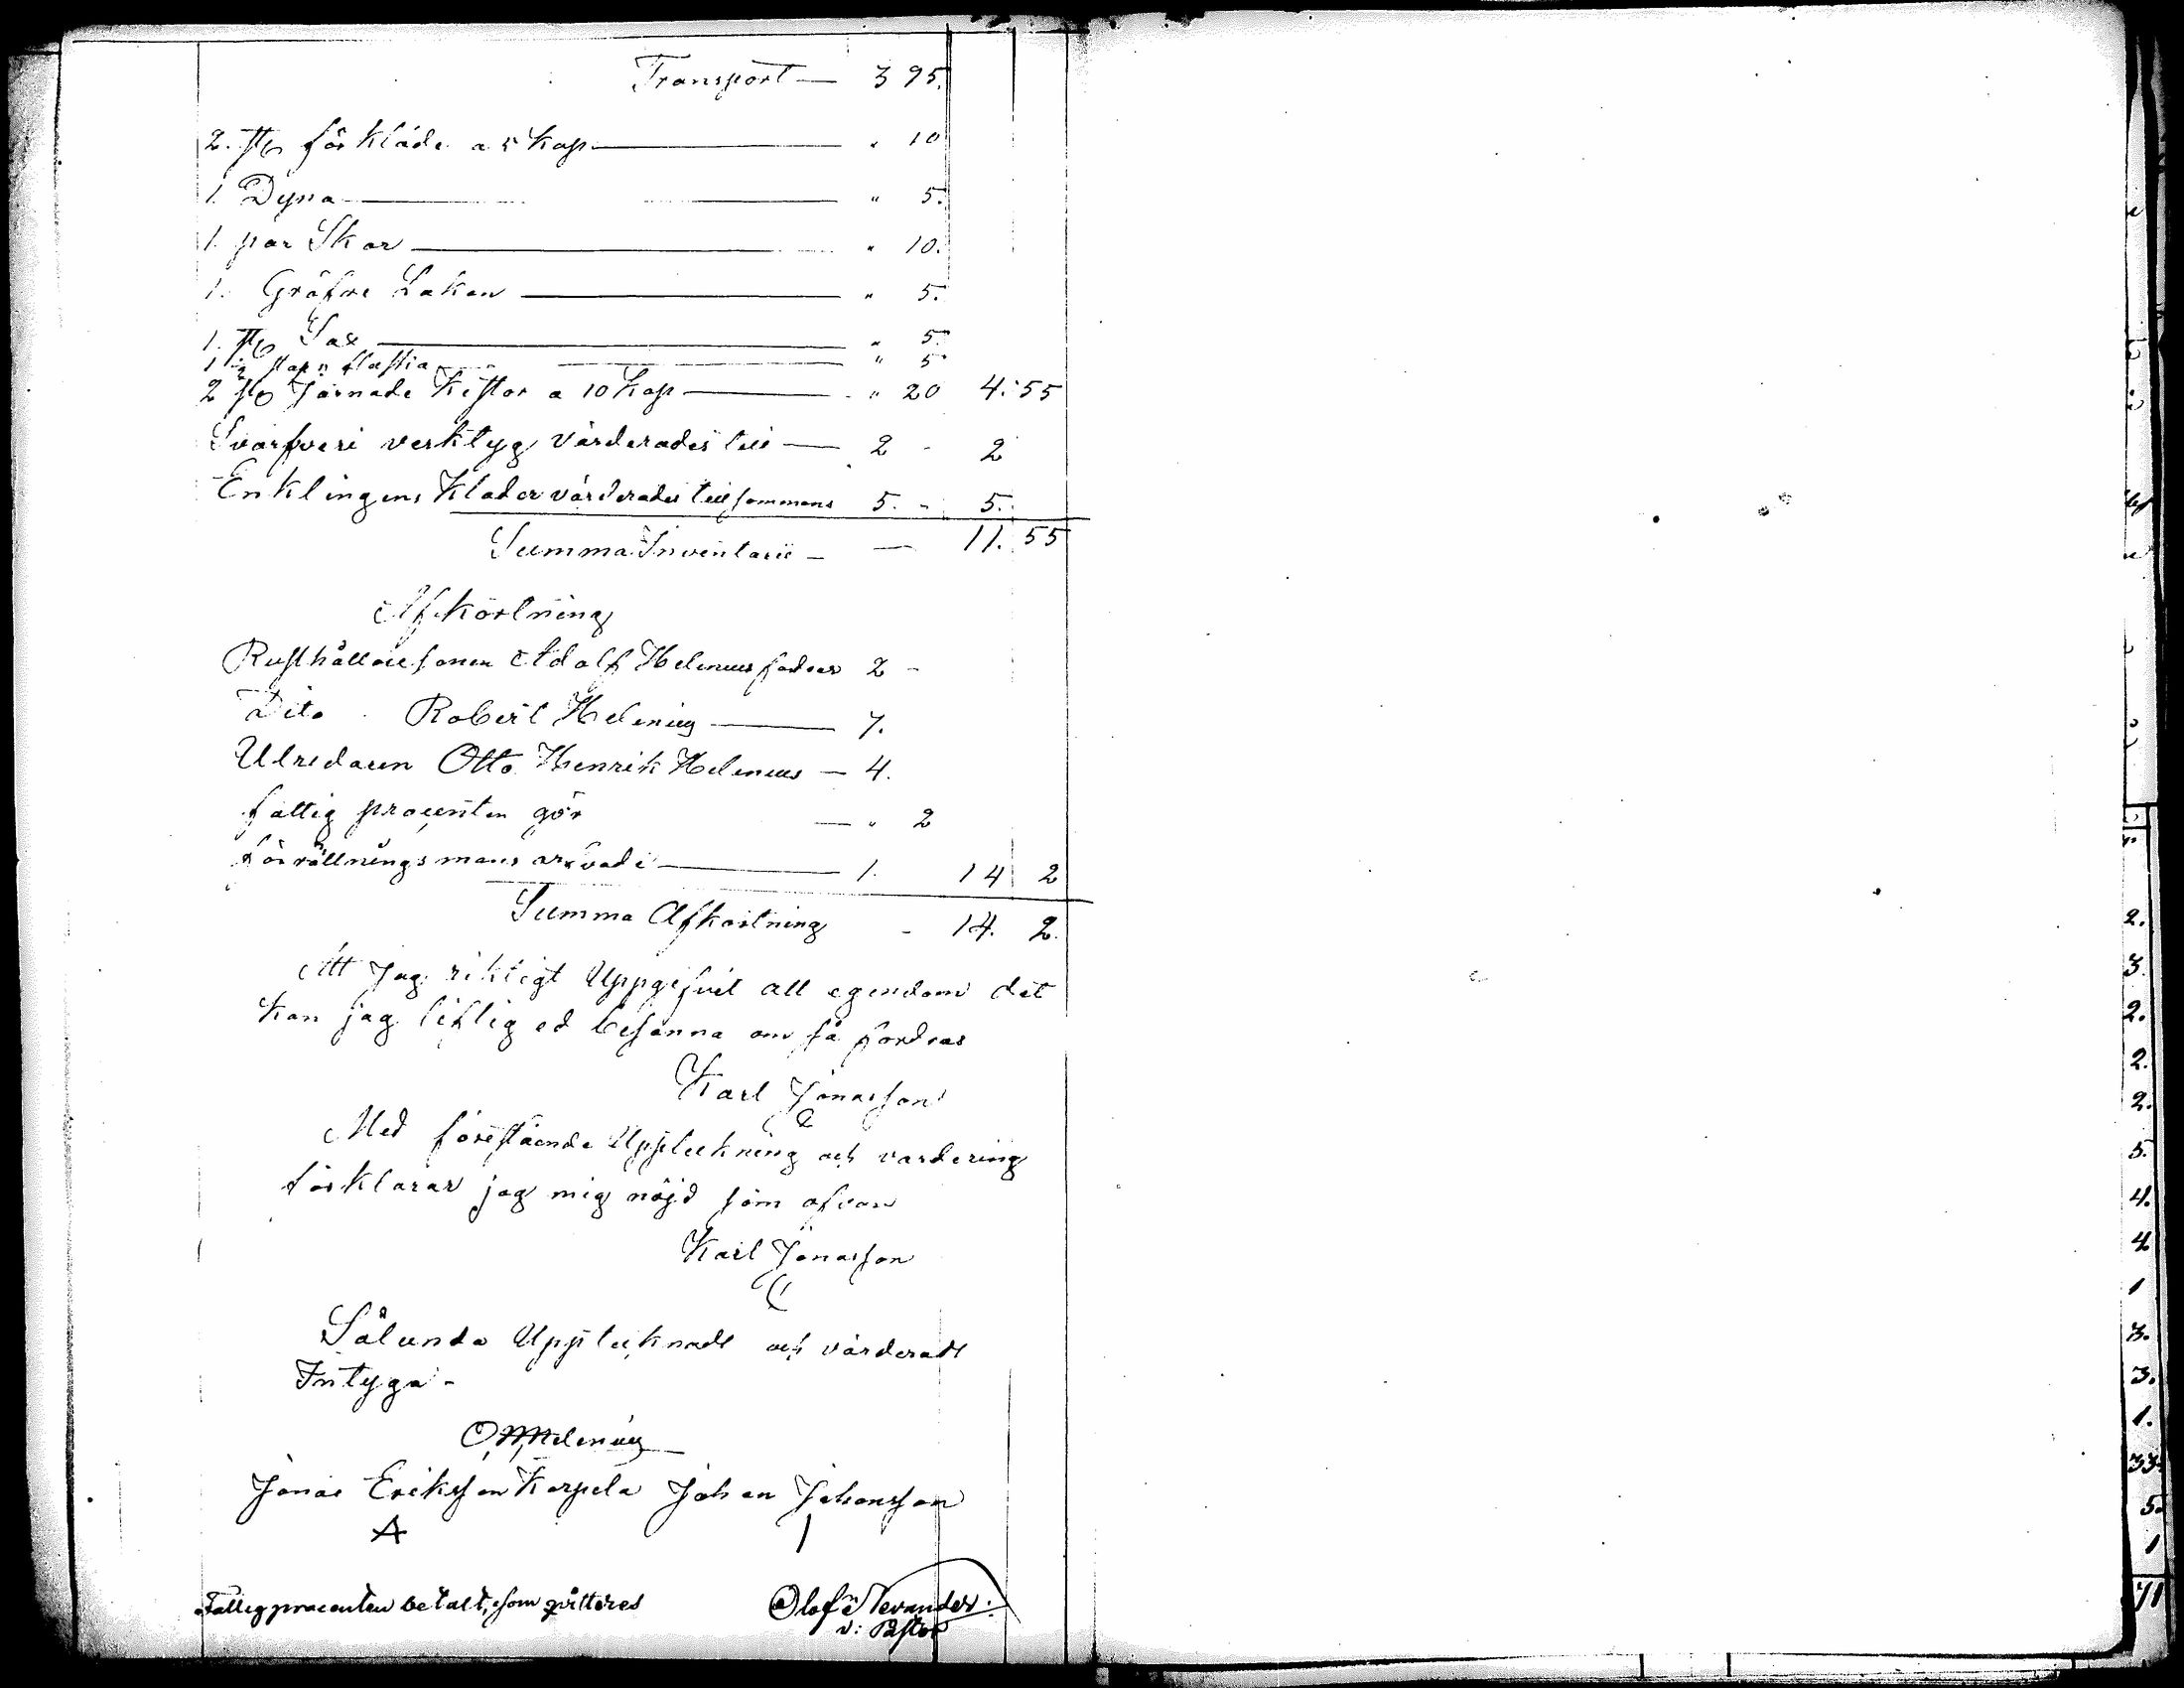 Transport — 3 95.
2. st förkläde a 5 kop — " 10
1. Dyna — " 5.
1. par Skor — " 10.
1. Gräfre Lakan — " 5.
1. st Sax — " 5
1 1/2 stops flaska — " 5
2 st Järnade Kistor a 10 Kop — " 20 4. 55
Svarfveri verktyg värderades till — 2 - 2
Enklingens Kläder värderades tillsammans 5. - 5.
Summa Inventarii — — 11. 55
Afkortning
Rusthållaresonen Adolf Helenius fodrar 2 -
Dito Robert Helenius — 7.
Utredaren Otto Henrik Helenius — 4.
fattig procenten gör — " 2
förrättningsmans arfvode — 1. 14 2
Summa Afkortning - 14. 2.
Att Jag riktigt Uppgifvit all egendom det
kan jag liflig ed besanna om så fordras
Karl Jonasson
Med förestående Uppteckning och vardering
förklarar jag mig nöjd som ofvan
Karl Jonasson
Sålunda Upptecknadt och värderadt
Intyga -
O H Helenius
Jonas Eriksson Korpela Johan Johansson
Fattigprocenten betalt, som qvitteres Olof Nevander.
v: Pastor
2.
3.
2.
2.
2.
5.
4.
4
1
3.
3.
1.
33.
5.
1
71